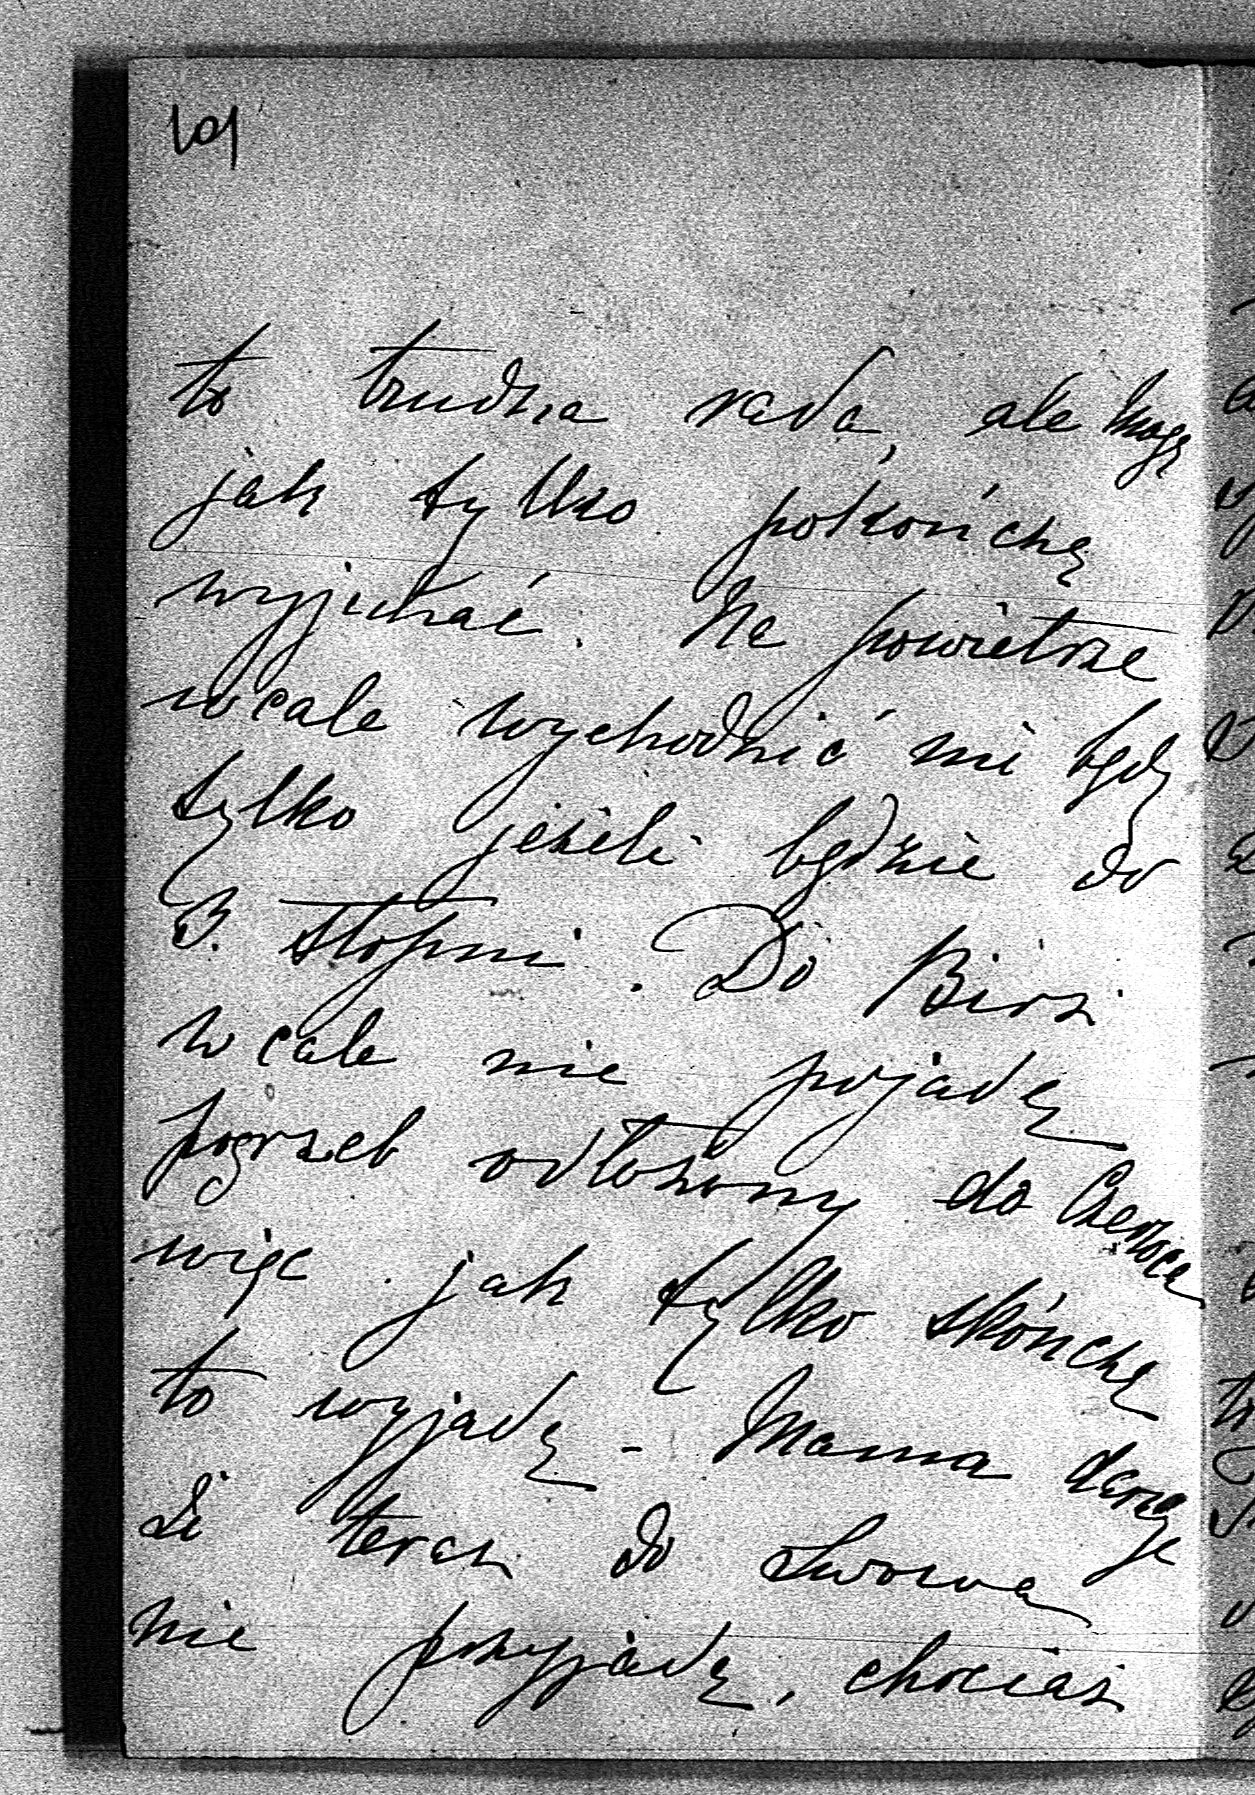 101
to trudna rada, ale mogę
jak tylko pokończę
wyjechać. Na powietrze
wcale wychodzić mi będę
tylko jeżeli będzie do
3. stopni. Do Birż
wcale nie pojadę
pogrzeb odłożony do Czerwca
więc jak tylko skończę
to wyjadę - Mama daruje
że teraz do Lwowa
nie przyjadę, chociaż